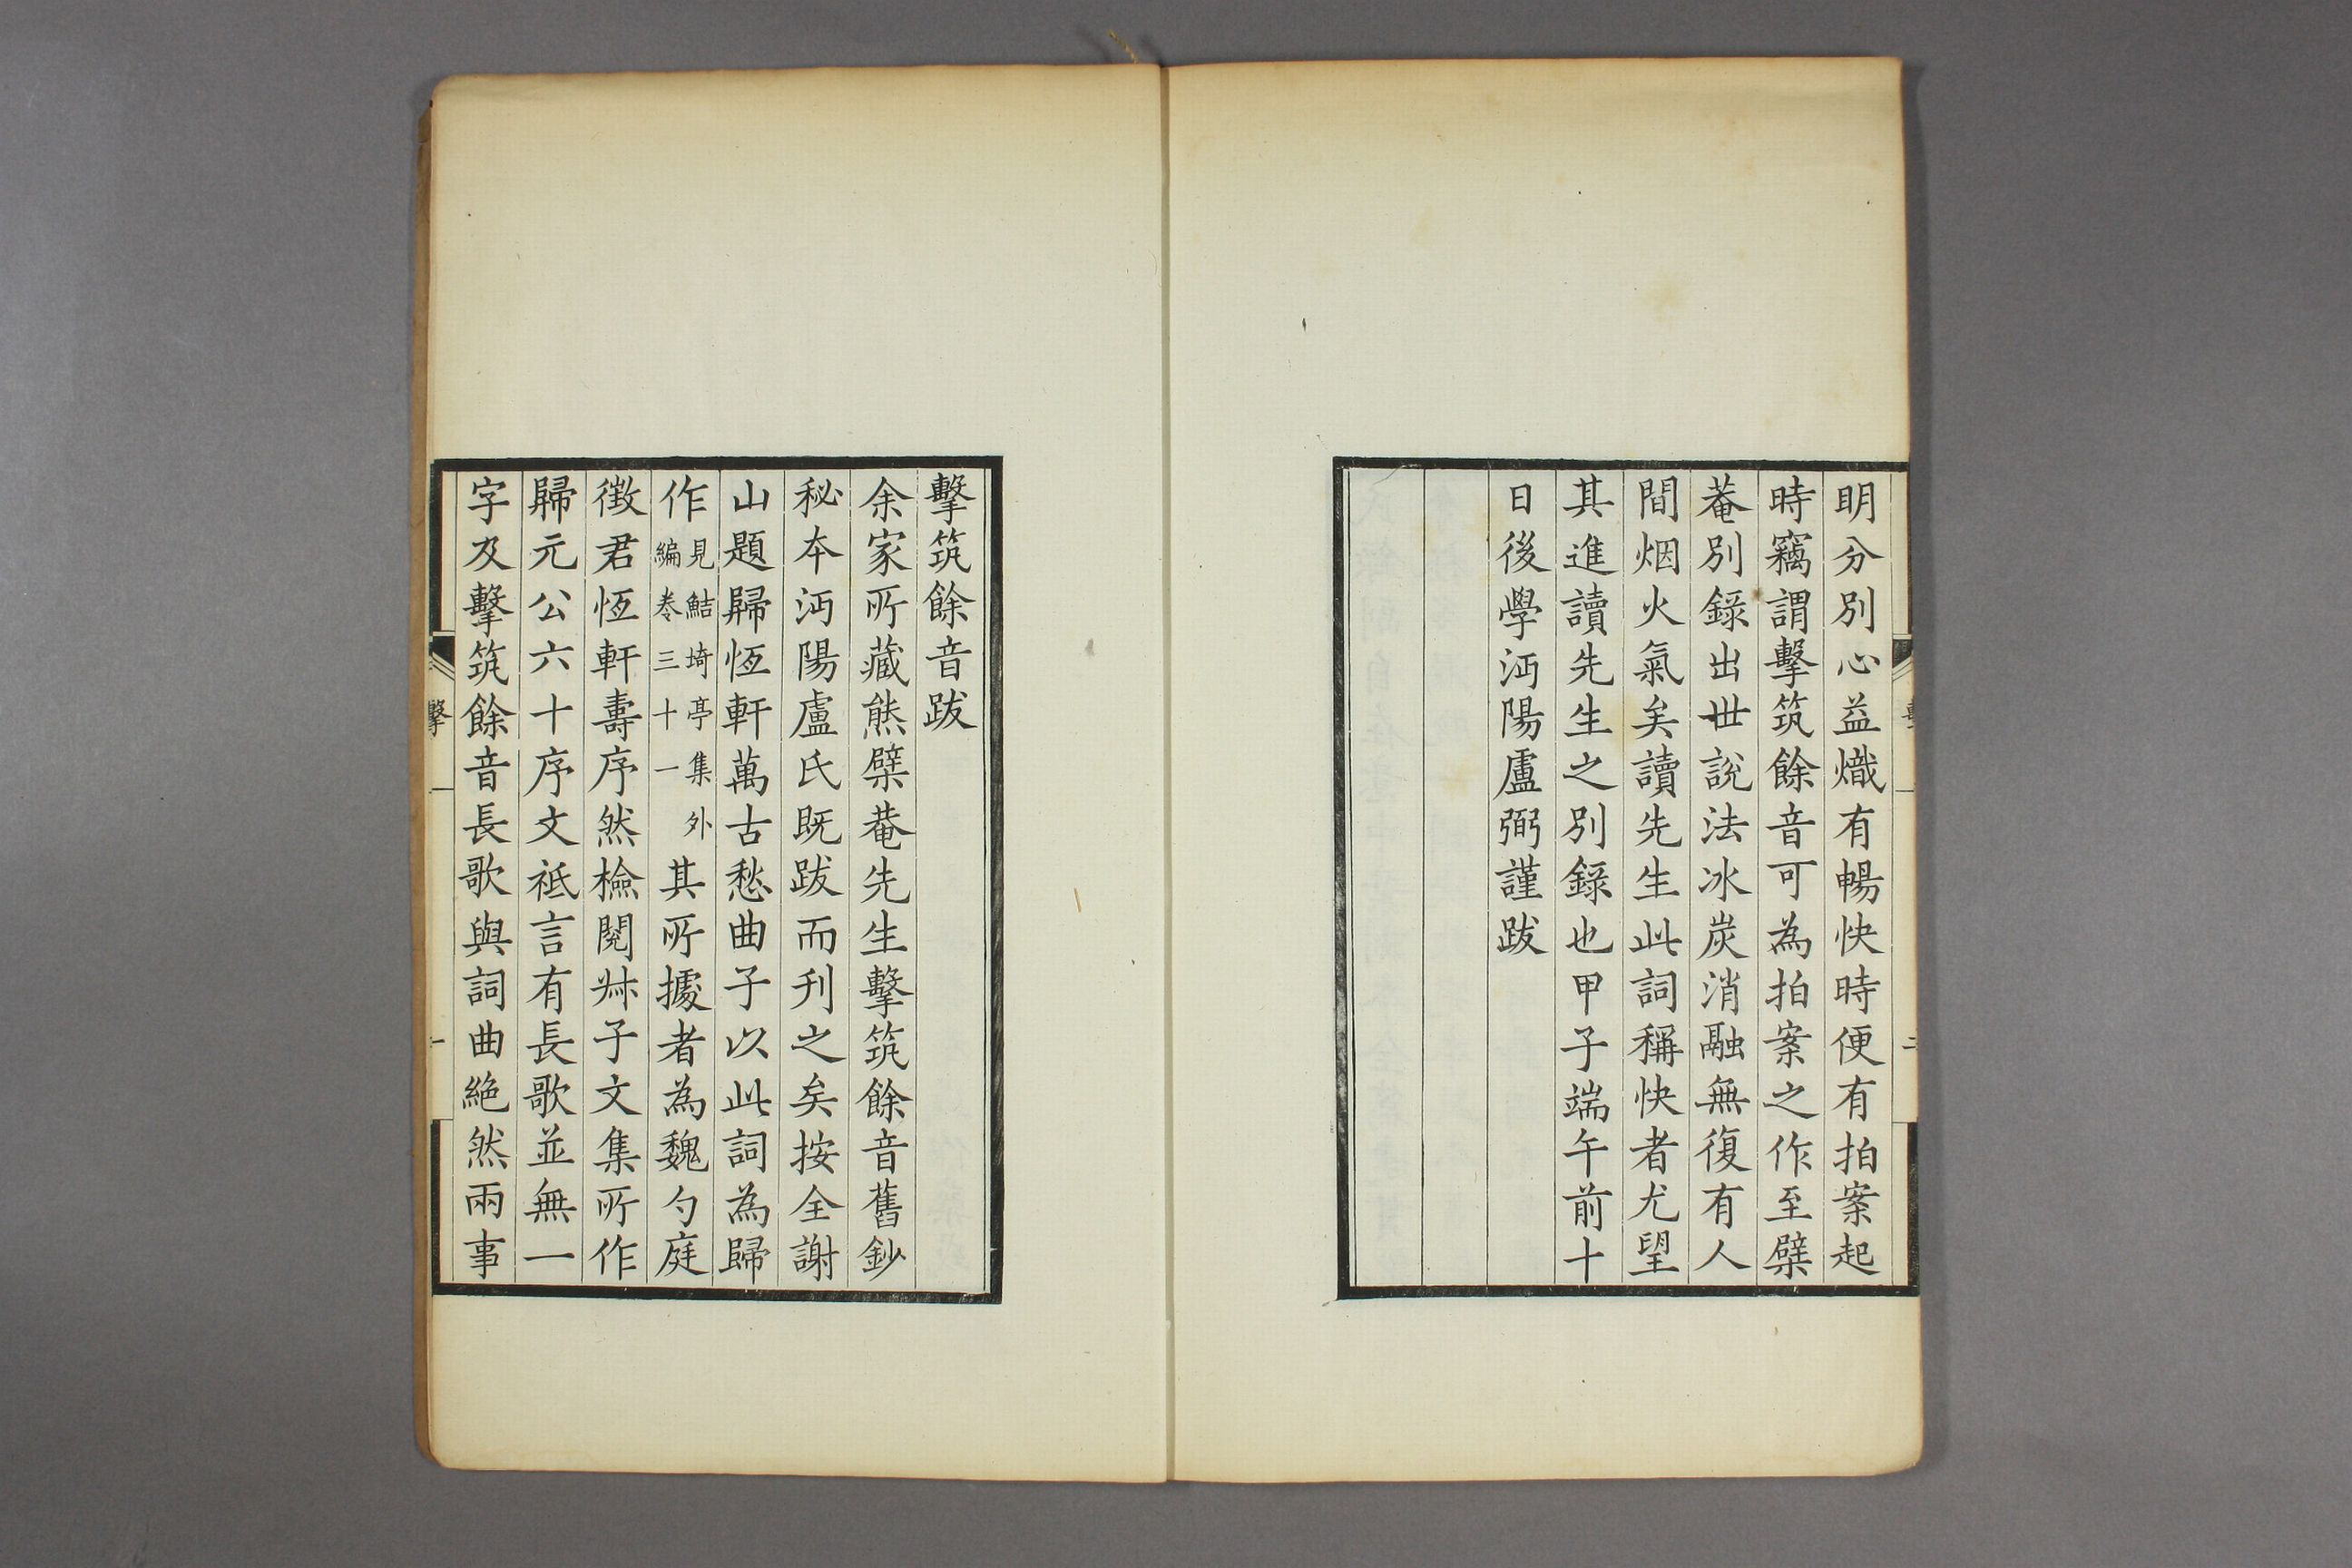 明分別心益熾有暢快時便有拍案起
時竊謂擊筑餘音可為拍案之作至檗
菴別錄出世說法冰炭消融無復有人
間烟火氣矣讀先生此詞稱快者尤望
其進讀先生之別錄也甲子端午前十
日後學沔陽盧弼謹跋
擊筑餘音跋
余家所藏熊檗菴先生擊筑餘音舊鈔
秘本沔陽盧氏既跋而刋之矣按全謝
山題歸恆軒萬古愁曲子以此詞為歸
作見鮚埼亭集外編卷三十一其所據者為魏勺庭
徵君恆軒壽序然檢閱叔子文集所作
歸元公六十序文祗言有長歌並無一
字及擊筑餘音長歌與詞曲絕然兩事
擊
一